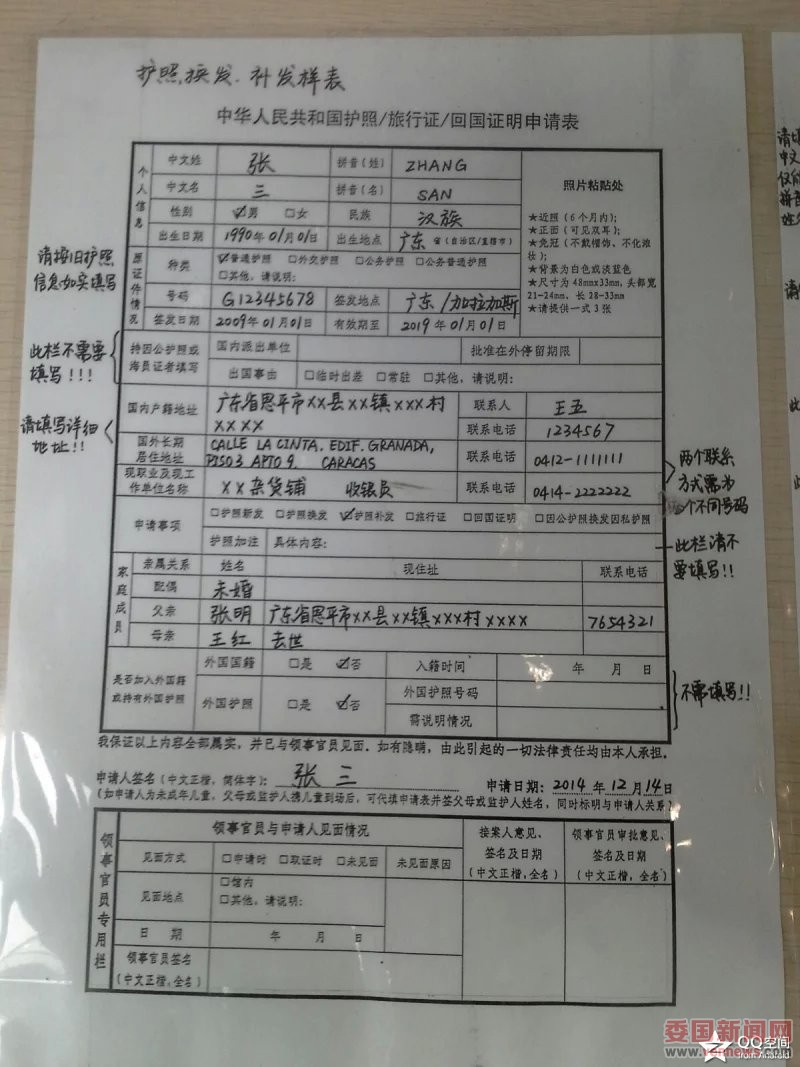 护照,换发.补发样表
中华人民共和国护照/旅行证/回国证明申请表
个人信息
中文姓 张 拼音(姓) ZHANG
中文名 三 拼音(名) SAN
性别 ☑男 □女 民族 汉族
出生日期 1990年01月01日 出生地点 广东 省(自治区/直辖市)
照片粘贴处
★近照(6个月内);
★正面(可见双耳);
★免冠(不戴帽饰、不化浓
妆);
★背景为白色或淡蓝色
★尺寸为48mm×33mm,头部宽
21-24mm、长28-33mm
★请提供一式3张
请按旧护照
信息如实填写
原证件情况
种类 ☑普通护照 □外交护照 □公务护照 □公务普通护照
□其他,请说明:
号码 G12345678 签发地点 广东/加拉加斯
签发日期 2009年01月01日 有效期至 2019年01月01日
此栏不需要
填写!!!
持因公护照或
海员证者填写
国内派出单位 批准在外停留期限
出国事由 □临时出差 □常驻 □其他,请说明:
请填写详细
地址!!
国内户籍地址 广东省恩平市××县××镇×××村
××××
联系人 王五
联系电话 1234567
国外长期
居住地址
CALLE LA CINTA. EDIF. GRANADA,
PISO3 APTO 9. CARACAS
联系电话 0412-1111111
现职业及现工
作单位名称
××杂货铺 收银员 联系电话 0414-2222222
两个联系
方式需为
两个不同号码
申请事项 □护照新发 □护照换发 ☑护照补发 □旅行证 □回国证明 □因公护照换发因私护照
护照加注 具体内容:
此栏请不
要填写!!
家庭成员
亲属关系 姓名 现住址 联系电话
配偶 未婚
父亲 张明 广东省恩平市××县××镇×××村×××× 7654321
母亲 王红 去世
是否加入外国籍
或持有外国护照
外国国籍 □是 ☑否 入籍时间 年 月 日
外国护照 □是 ☑否 外国护照号码
需说明情况
不需填写!!
我保证以上内容全部属实,并已与领事官员见面.如有隐瞒,由此引起的一切法律责任均由本人承担.
申请人签名(中文正楷,简体字): 张三 申请日期: 2014年12月14日
(如申请人为未成年儿童,父母或监护人携儿童到场后,可代填申请表并签父母或监护人姓名,同时标明与申请人关系)
领事官员专用栏
领事官员与申请人见面情况
接案人意见、
签名及日期
(中文正楷,全名)
领事官员审批意见、
签名及日期
(中文正楷,全名)
见面方式 □申请时 □取证时 □未见面 未见面原因
见面地点 □馆内
□其他,请说明:
日 期 年 月 日
领事官员签名
(中文正楷,全名)
委国新闻网
www.vennews.com
QQ空间
from Android